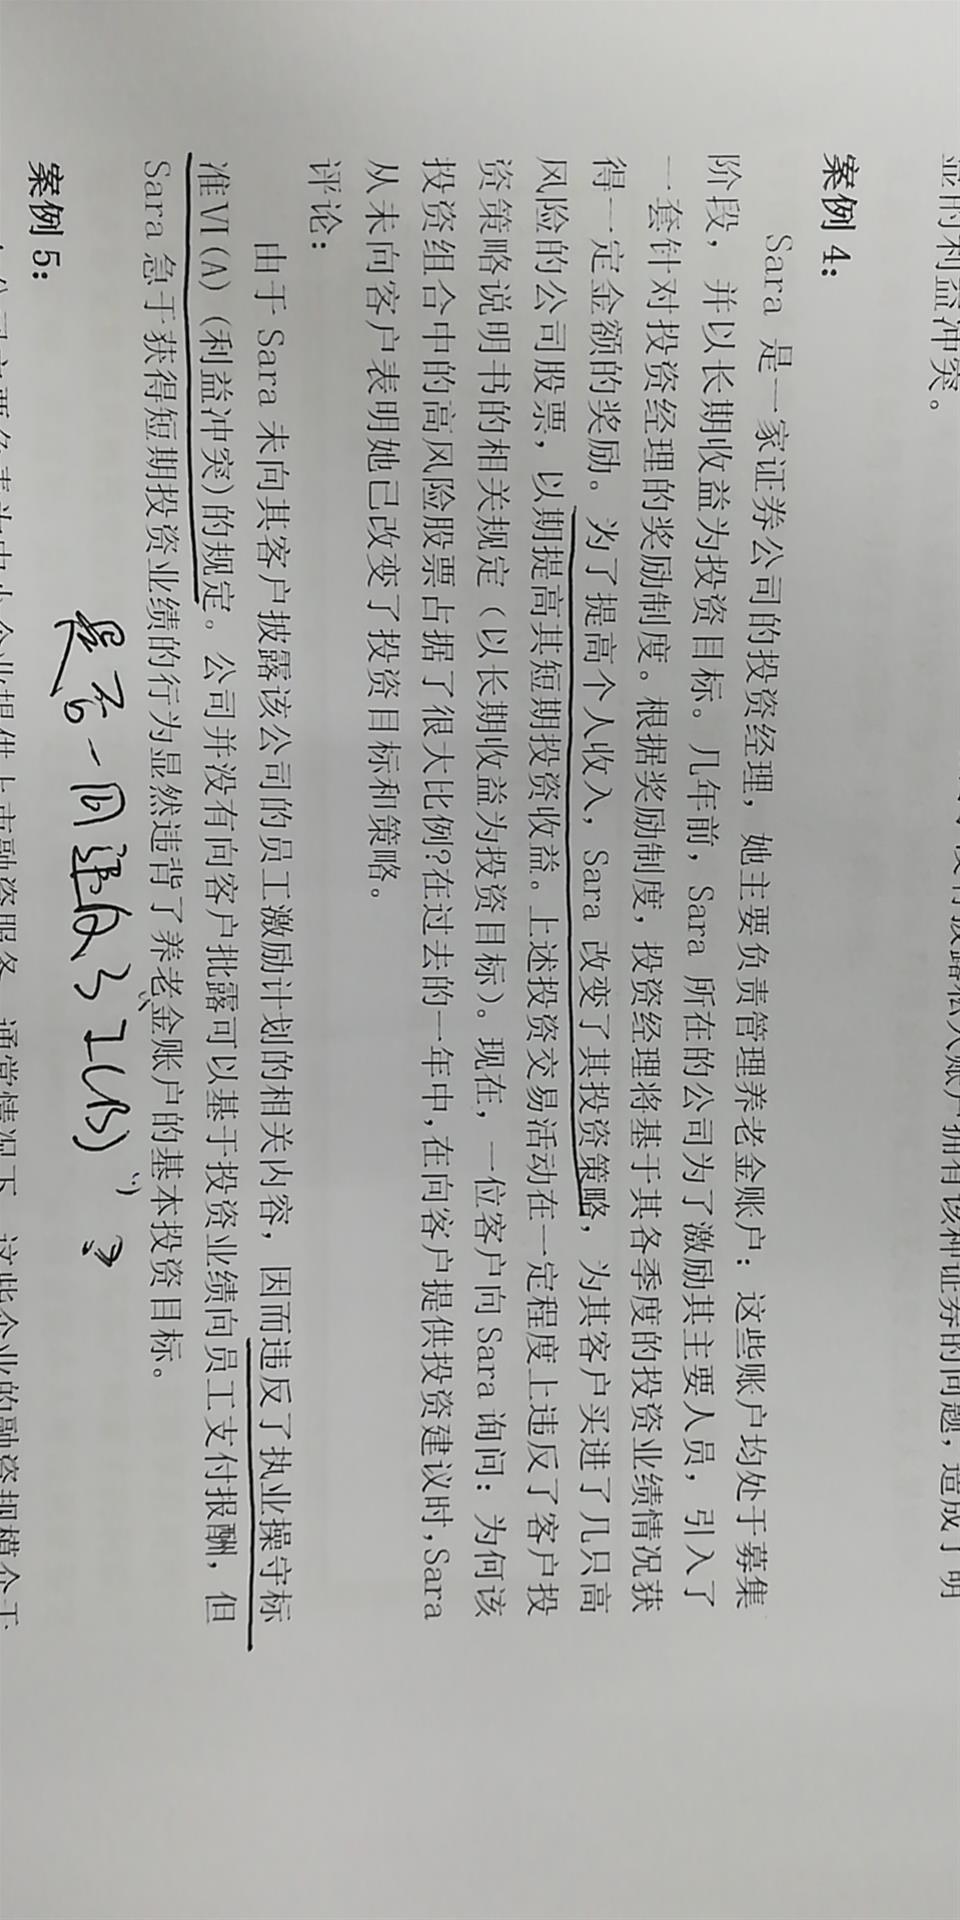 显的利益冲突。
披露私人账户拥有该种证券的问题，造成了明
案例 4：
Sara 是一家证券公司的投资经理，她主要负责管理养老金账户：这些账户均处于募集
阶段，并以长期收益为投资目标。几年前，Sara 所在的公司为了激励其主要人员，引入了
一套针对投资经理的奖励制度。根据奖励制度，投资经理将基于其各季度的投资业绩情况获
得一定金额的奖励。为了提高个人收入，Sara 改变了其投资策略，为其客户买进了几只高
风险的公司股票，以期提高其短期投资收益。上述投资交易活动在一定程度上违反了客户投
资策略说明书的相关规定（以长期收益为投资目标）。现在，一位客户向 Sara 询问：为何该
投资组合中的高风险股票占据了很大比例?在过去的一年中，在向客户提供投资建议时，Sara
从未向客户表明她已改变了投资目标和策略。
评论：
由于 Sara 未向其客户披露该公司的员工激励计划的相关内容，因而违反了执业操守标
准VI(A)(利益冲突)的规定。公司并没有向客户批露可以基于投资业绩向员工支付报酬，但
Sara 急于获得短期投资业绩的行为显然违背了养老金账户的基本投资目标。
是否一同违反了I(B) ?
案例 5：
企业提供上市融资服务，通常情况下，这些企业的融资规模介于